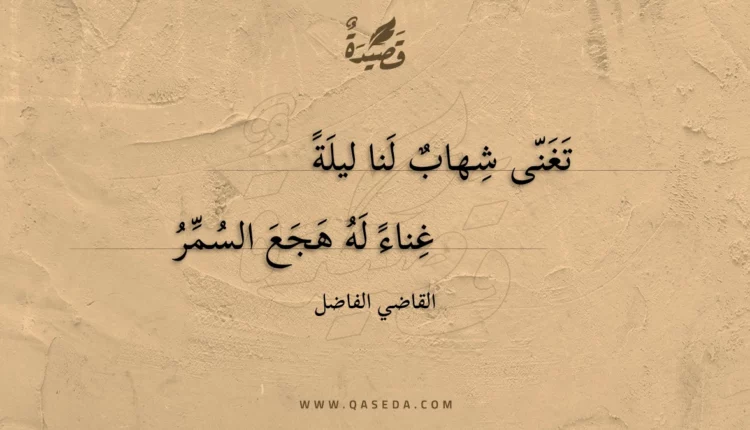 قَصِيدَةٌ
تَغَنّى شِهابٌ لَنا ليلَةً
غِناءً لَهُ هَجَعَ السُمِّرُ
القاضي الفاضل
WWW.QASEDA.COM